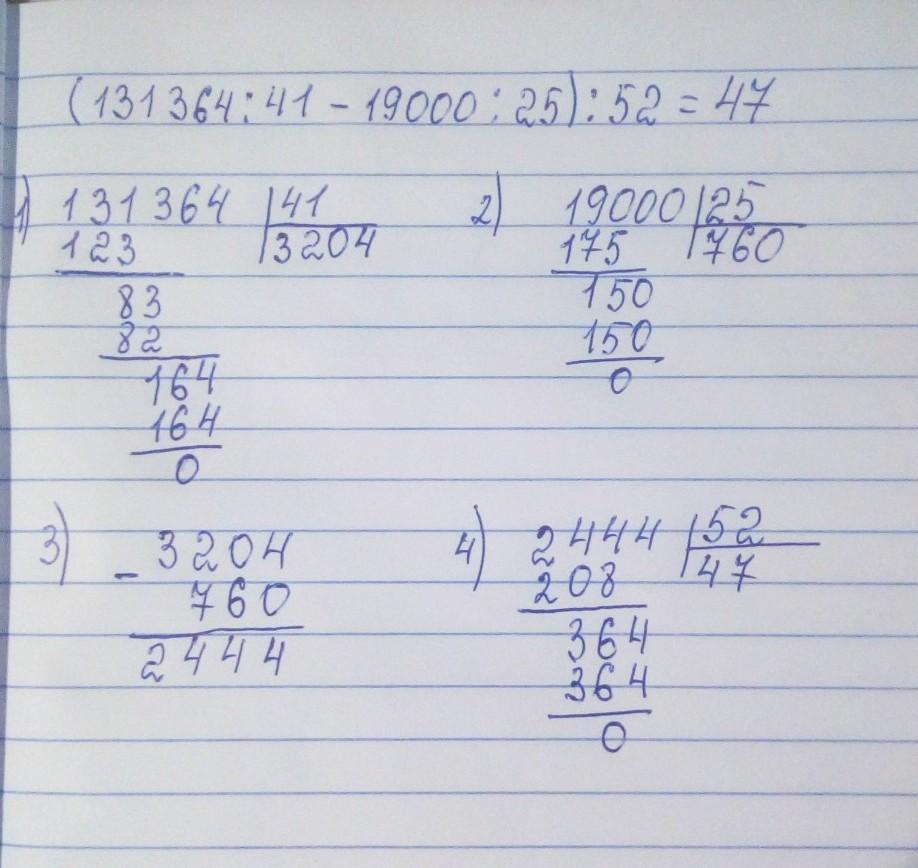 (131364:41-19000:25):52=47
1) 131364 | 41
123 | 3204
83
82
164
164
0
2) 19000 | 25
175 | 760
150
150
0
3) 3204
- 760
2444
4) 2444 | 52
208 | 47
364
364
0